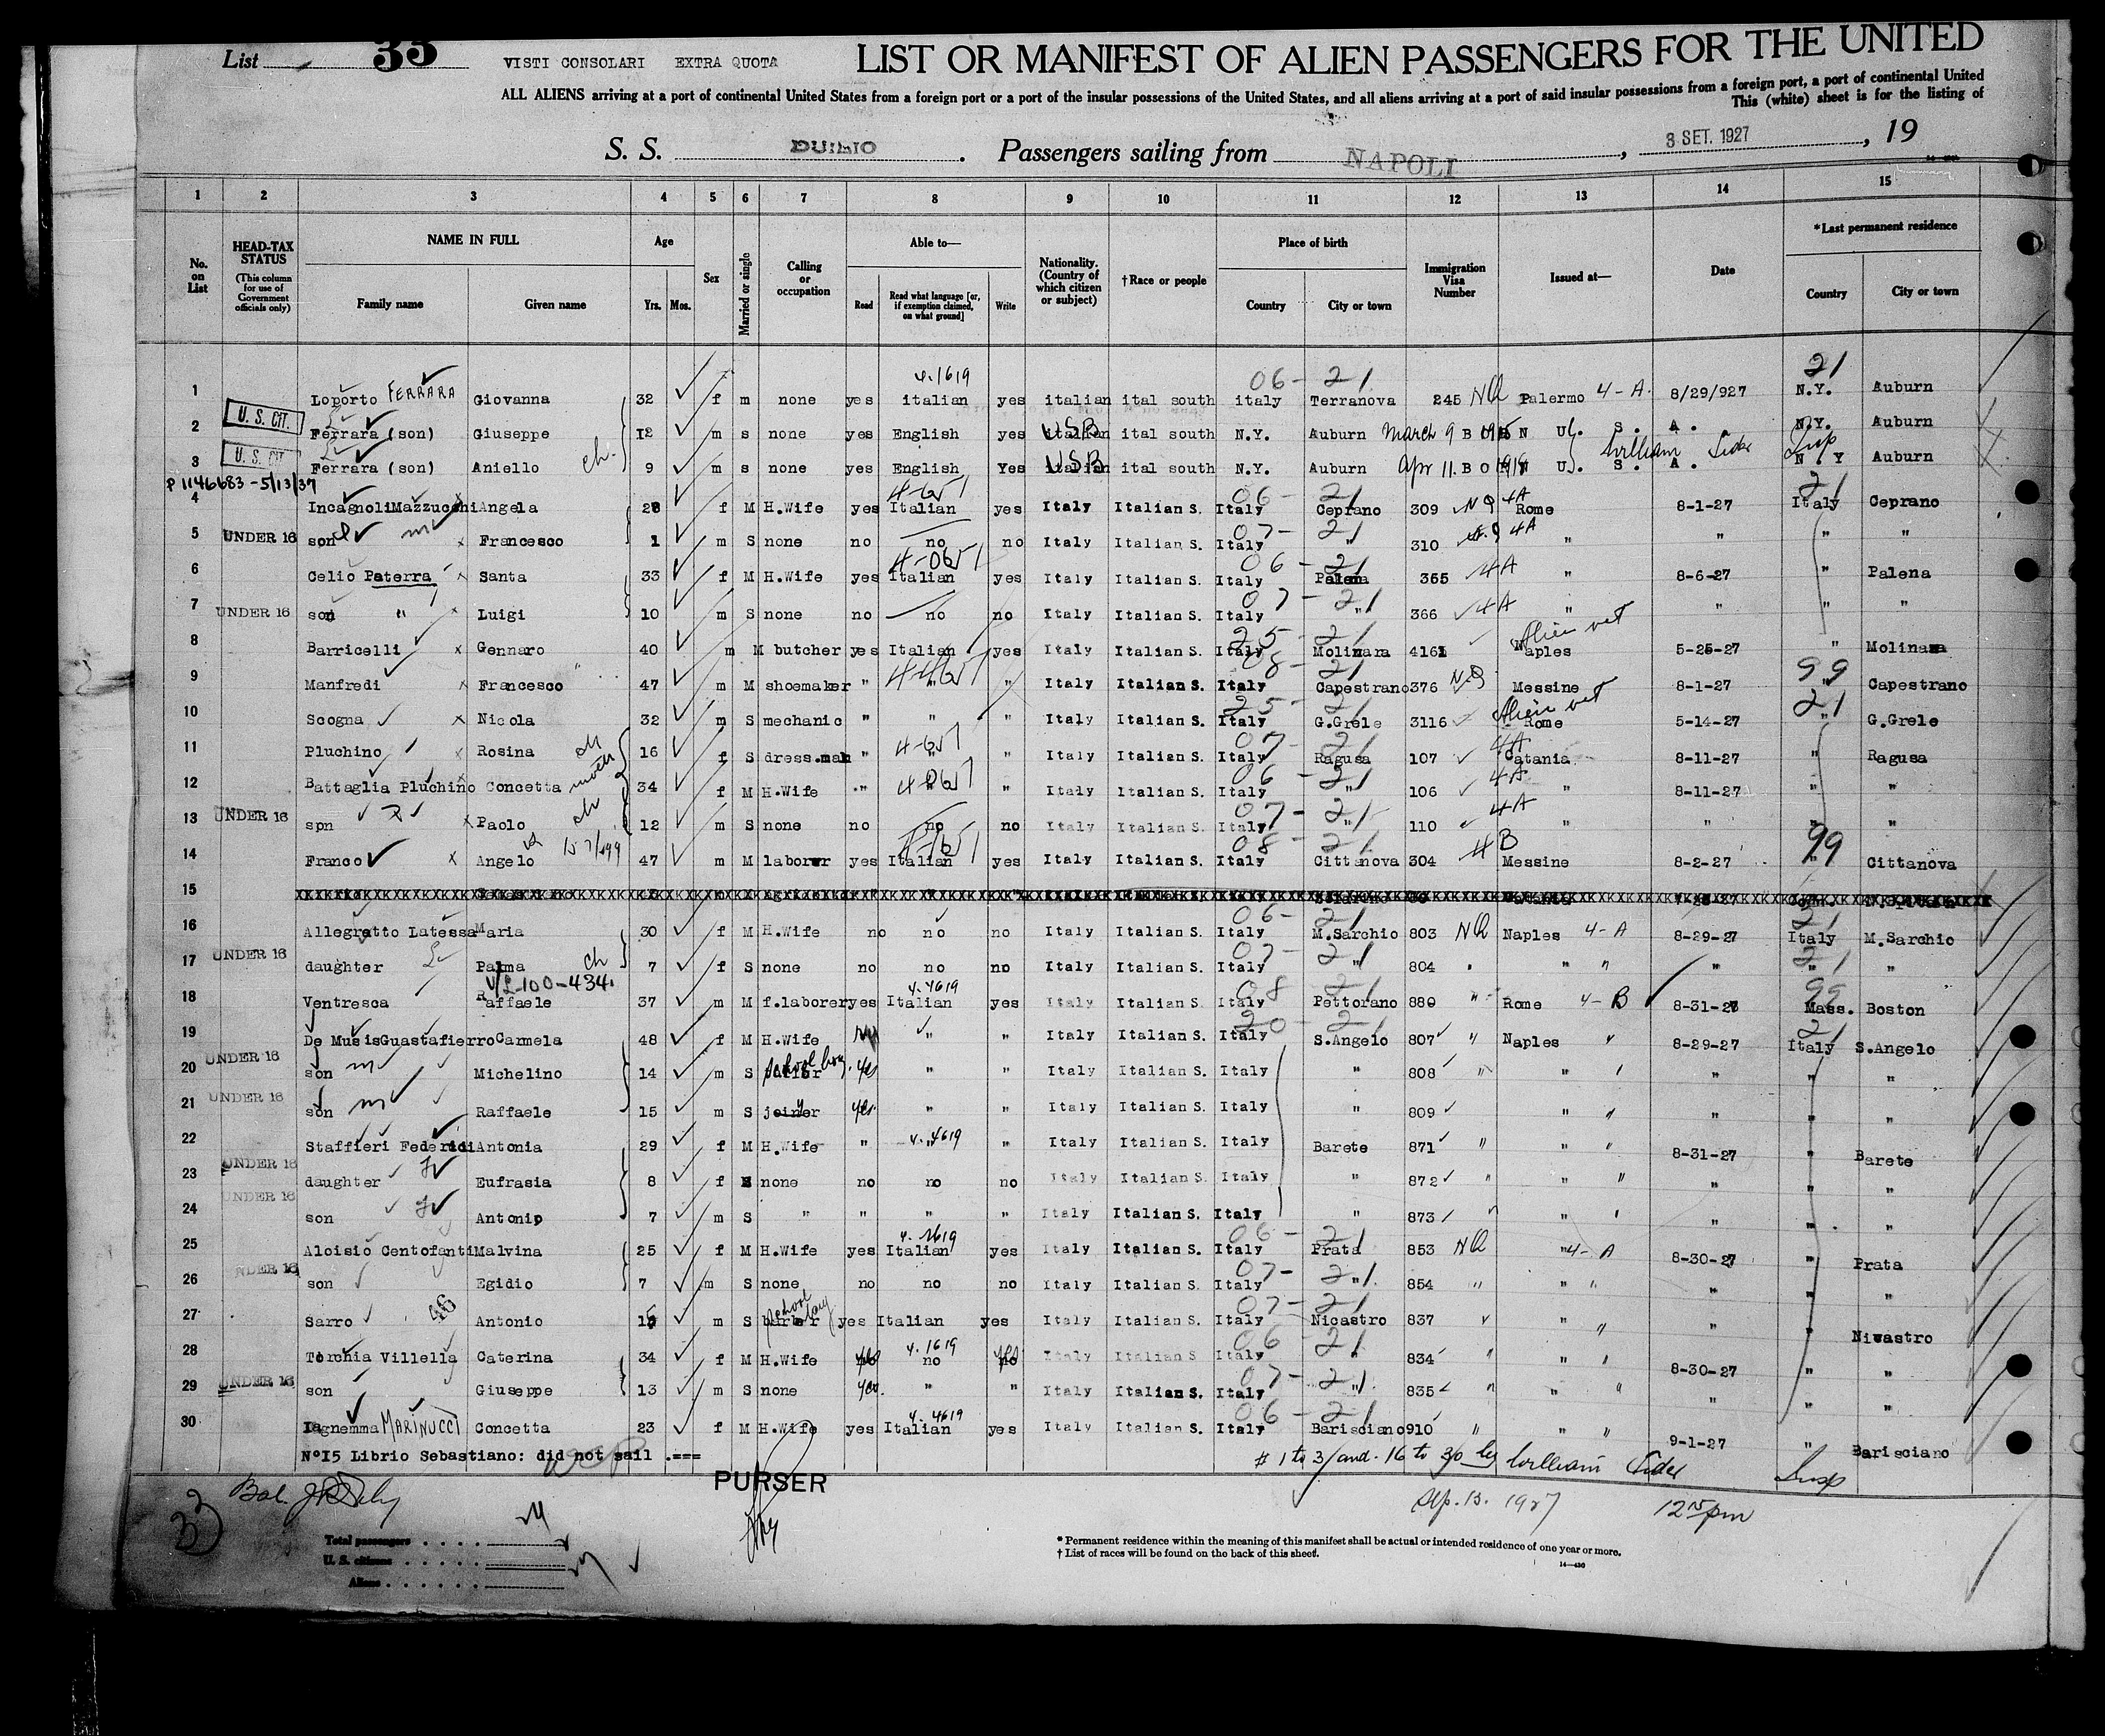 List 33 VISTI CONSOLARI EXTRA QUOTA LIST OR MANIFEST OF ALIEN PASSENGERS FOR THE UNITED
ALL ALIENS arriving at a port of continental United States from a foreign port or a port of the insular possessions of the United States, and all aliens arriving at a port of said insular possessions from a foreign port, a port of continental United
This (white) sheet is for the listing of
S. S. DUILIO . Passengers sailing from NAPOLI , 3 SET. 1927 , 19
1 2 3 4 5 6 7 8 9 10 11 12 13 14 15
No. on List HEAD-TAX STATUS (This column for use of Government officials only) NAME IN FULL Family name Given name Age Yrs. Mos. Sex Married or single Calling or occupation Able to— Read Read what language [or, if exemption claimed, on what ground] Write Nationality. (Country of which citizen or subject) †Race or people Place of birth Country City or town Immigration Visa Number Issued at— Date *Last permanent residence Country City or town
4.1619 06- 21 21
1 Loporto FERRARA Giovanna 32 f m none yes italian yes italian ital south italy Terranova 245 NQ Palermo 4-A. 8/29/927 N.Y. Auburn
2 U. S. CIT. Ferrara (son) Giuseppe 12 m s none yes English yes italian USB ital south N.Y. Auburn March 9 1915 B O R N U. S. A. N.Y. Auburn
3 U. S. CIT. Ferrara (son) Aniello ch. 9 m s none yes English Yes italian USB ital south N.Y. Auburn Apr 11. 1918 B O R N U. S. A. William Sider Insp N.Y Auburn
P 1146683-5/13/37
4 Incagnoli Mazzucchi Angela 28 f M H.Wife yes Italian yes Italy Italian S. Italy 06- 21 Ceprano 309 NQ 4A Rome 8-1-27 21 Italy Ceprano
5 UNDER 16 son Francesco 1 m S none no no no Italy Italian S. Italy 07- 21 " 310 4A " " " "
6 Celio Paterra Santa 33 f M H.Wife yes Italian yes Italy Italian S. Italy 06- 21 Palena 365 4A " 8-6-27 " Palena
7 UNDER 16 son " Luigi 10 m S none no no no Italy Italian S. Italy 07- 21 " 366 4A " " " "
8 Barricelli Gennaro 40 m M butcher yes Italian yes Italy Italian S. Italy 25- 21 Molinara 4161 Alien vet Naples 5-25-27 " Molinara
9 Manfredi Francesco 47 m M shoemaker " " " Italy Italian S. Italy 08- 21 Capestrano 376 NQ Messine 8-1-27 99 " Capestrano
10 Scogna Nicola 32 m S mechanic " " " Italy Italian S. Italy 25- 21 G.Grele 3116 Alien vet Rome 5-14-27 21 " G.Grele
11 Pluchino Rosina ch 16 f S dress.mak " " " Italy Italian S. Italy 07- 21 Ragusa 107 4A Catania 8-11-27 " Ragusa
12 Battaglia Pluchino Concetta mother 34 f M H.Wife " " " Italy Italian S. Italy 06- 21 " 106 4A " 8-11-27 " "
13 UNDER 16 son Paolo ch 12 m S none no no no Italy Italian S. Italy 07- 21 " 110 4A " " " "
14 Franco Angelo 47 m M laborer yes Italian yes Italy Italian S. Italy 08- 21 Cittanova 304 4B Messine 8-2-27 99 " Cittanova
15
16 Allegratto Latessa Maria 30 f M H.Wife no no no Italy Italian S. Italy 06- 21 M.Sarchio 803 NQ Naples 4-A 8-29-27 21 Italy M.Sarchio
17 UNDER 16 daughter Palma ch 7 f S none no no no Italy Italian S. Italy 07- 21 " 804 " " " " 21 " "
V/L-100-434. 4.4619
18 Ventresca Raffaele 37 m M f.laborer yes Italian yes Italy Italian S. Italy 08 21 Pettorano 880 " Rome 4-B 8-31-27 99 Mass. Boston
19 De Musis Guastafierro Carmela 48 f M H.Wife " " Italy Italian S. Italy 20- 21 S.Angelo 807 " Naples " 8-29-27 21 Italy S.Angelo
20 UNDER 16 son Michelino 14 m S school boy. yes " " Italy Italian S. Italy " 808 " " " " " "
21 UNDER 16 son Raffaele 15 m S joiner yes " " Italy Italian S. Italy " 809 " " " " " "
22 Staffieri Federici Antonia 29 f M H.Wife " 4.4619 " " Italy Italian S. Italy Barete 871 " " " 8-31-27 " Barete
23 UNDER 16 daughter Eufrasia 8 f S none no no no Italy Italian S. Italy " 872 " " " " " "
24 UNDER 16 son Antonio 7 m S " " " " Italy Italian S. Italy " 873 " " " " " "
25 Aloisio Centofanti Malvina 25 f M H.Wife yes Italian yes Italy Italian S. Italy 06- 21 Prata 853 NQ " 4-A 8-30-27 " Prata
26 UNDER 16 son Egidio 7 m S none no no no Italy Italian S. Italy 07- 21 " 854 " " " " "
27 Sarro 46 Antonio 15 m S barber school boy yes Italian yes Italy Italian S. Italy 07- 21 Nicastro 837 " " " " " Nicastro
28 Torchia Villella Caterina 34 f M H.Wife yes 4.1619 no yes Italy Italian S Italy 06 21 " 834 " " " 8-30-27 " "
29 UNDER 16 son Giuseppe 13 m S none yes. " " Italy Italian S. Italy 07- 21 " 835 " " " " " "
30 Iagnemma MARINUCCI Concetta 23 f M H.Wife yes 4.4619 Italian yes Italy Italian S. Italy 06- 21 Barisciano 910 " " " 9-1-27 " Barisciano
N°15 Librio Sebastiano: did not sail .=== # 1 to 3/and. 16 to 30 by William Sider Insp
PURSER
Sep. 13. 1927 12 15 pm
33
Total passengers
U. S. citizens
Aliens
* Permanent residence within the meaning of this manifest shall be actual or intended residence of one year or more.
† List of races will be found on the back of this sheet.
14—430